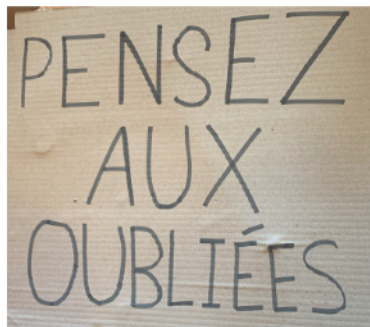 PENSEZ
AUX
OUBLIÉES